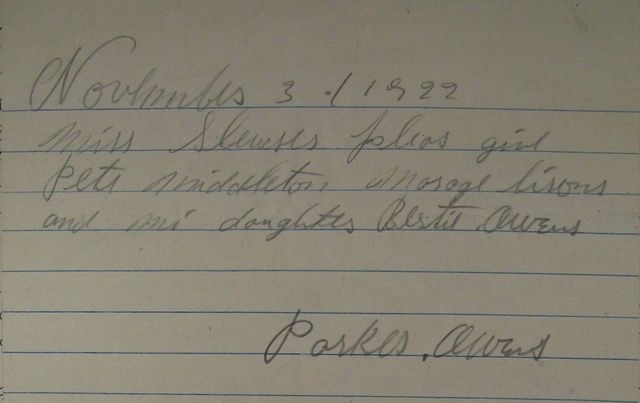 Novembes 3 /1922
Miss Slewses plias give
Pete Middleton marage lisons
and mi daughtes Bestie Owens
Parkes. Owens